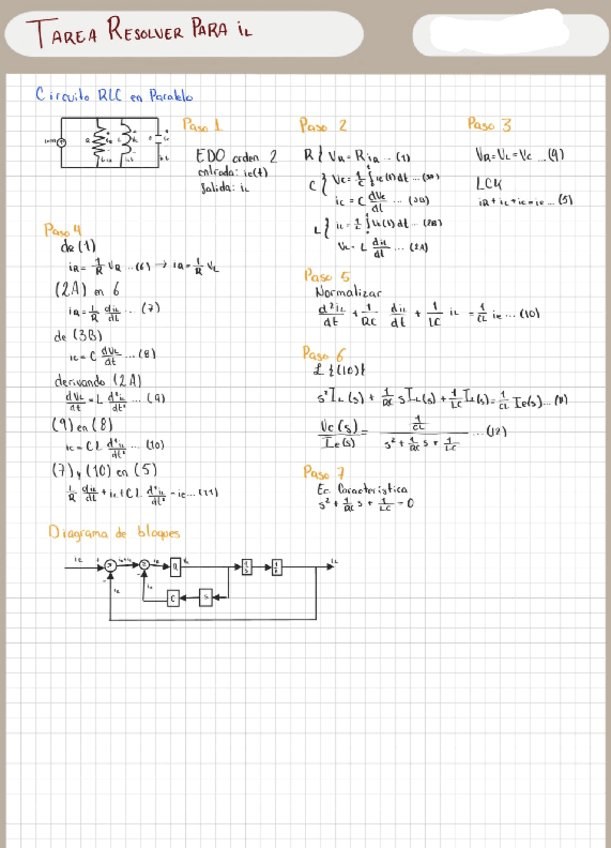 TAREA RESOLVER PARA iL
Circuito RLC en Paralelo
Paso 1
EDO orden 2
entrada: ie(t)
Salida: iL
Paso 2
R { VR = R iR ... (1)
ic = C dVc/dt
Paso 3
VR = VL = Vc ... (4)
LCK
iR + iL + ic = ie ... (5)
Paso 4
de (1)
iR = 1/R VR ... (6) → iR = 1/R VL
(2A) en 6
iR = 1/R diL/dt ... (7)
de (3B)
ic = C dVc/dt ... (8)
derivando (2A)
dVL/dt = L d²iL/dt² ... (9)
(9) en (8)
ic = CL d²iL/dt² ... (10)
(7) y (10) en (5)
1/R diL/dt + iL + CL d²iL/dt² = ie ... (11)
Paso 5
Normalizar
d²iL/dt + 1/RC diL/dt + 1/LC iL = 1/CL ie ... (10)
Paso 6
L{(10)}
s² IL(s) + 1/RC s IL(s) + 1/LC IL(s) = 1/CL Ie(s) ... (11)
Vc(s)/Ie(s) = 1/CL / s² + 1/RC s + 1/LC ... (12)
Paso 7
Ec. Característica
s² + 1/RC s + 1/LC = 0
Diagrama de bloques
ie
R
iL
C
s